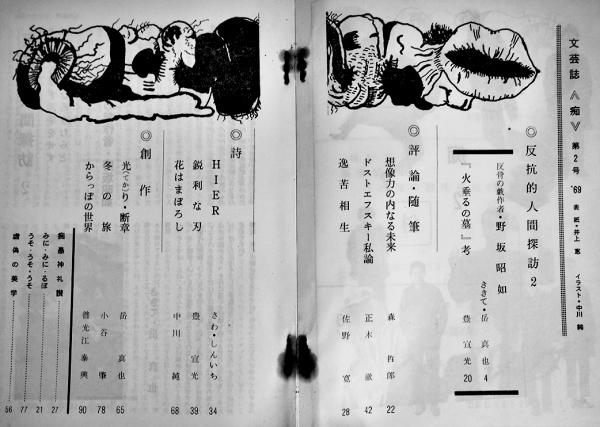 文芸誌 〈痴〉 第2号 '69 表紙・井上 恵 イラスト・中川 純
◎反抗的人間探訪2
反骨の戯作者・野坂昭如
ききて・岳 真也 4
『火垂るの墓』考 豊 宣光 20
◎評論・随筆
想像力の内なる未来 森 哲郎 22
ドストエフスキー私論 正木 徹 42
逸苦相生 佐野 寛 28
◎詩
HIER さわ・しんいち 34
鋭利な刃 豊 宣光 39
花はまぼろし 中川 純 68
◎創作
光(てか)り・断章 岳 真也 65
冬の旅 小谷 肇 78
からっぽの世界 普光江泰興 90
痴愚神礼讃 27
みに・みに・るぽ 21
うそ・うそ・うそ 77
虚偽の美学 56